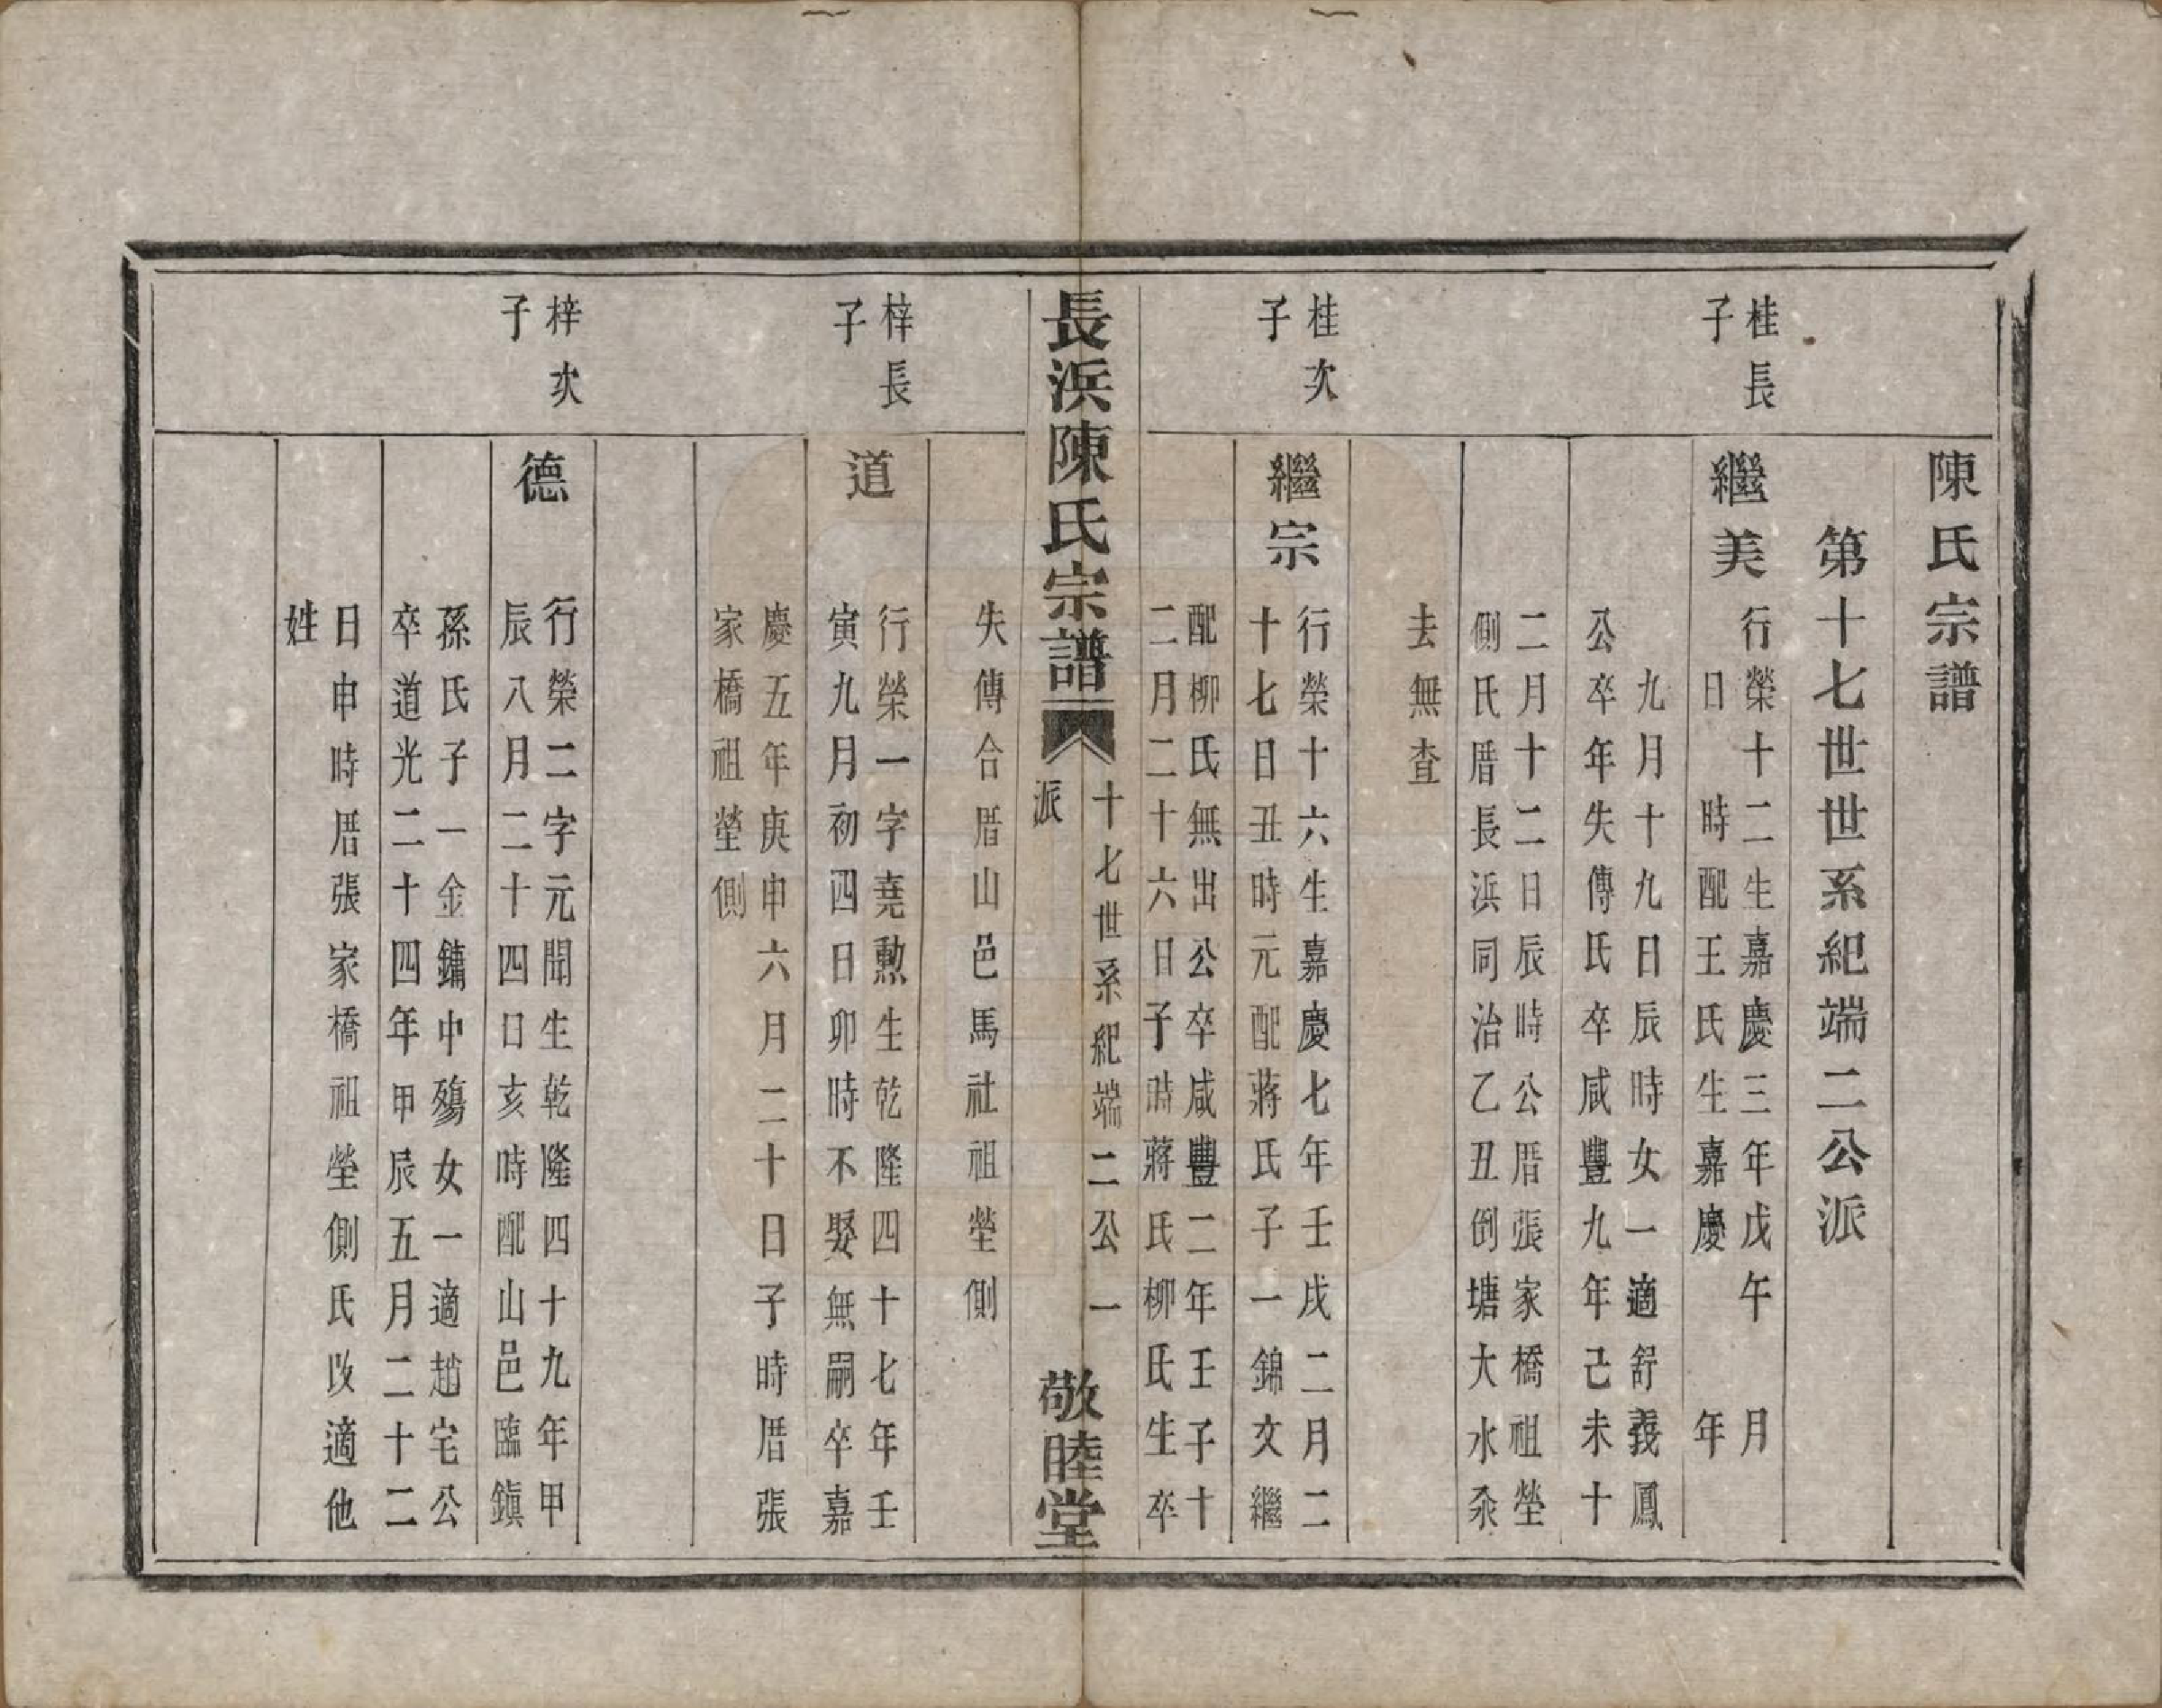 陳氏宗譜
第十七世世系紀端二公派
桂長
子
繼美
行榮十二生嘉慶三年戊午 月
日 時配王氏生嘉慶 年
九月十九日辰時女一適舒義鳳
公卒年失傳氏卒咸豐九年己未十
二月十二日辰時公厝張家橋祖塋
側氏厝長浜同治乙丑倒塘大水汆
去無查
桂次
子
繼宗
行榮十六生嘉慶七年壬戌二月二
十七日丑時元配蔣氏子一錦文繼
配柳氏無出公卒咸豐二年壬子十
二月二十六日子時蔣氏柳氏生卒
長浜陳氏宗譜
十七世系紀端二公 一
派
敬睦堂
失傳合厝山邑馬社祖塋側
梓長
子
道
行榮一字堯勲生乾隆四十七年壬
寅九月初四日卯時不娶無嗣卒嘉
慶五年庚申六月二十日子時厝張
家橋祖塋側
梓次
子
德
行榮二字元聞生乾隆四十九年甲
辰八月二十四日亥時配山邑臨鎭
孫氏子一金鏞中殤女一適趙宅公
卒道光二十四年甲辰五月二十二
日申時厝張家橋祖塋側氏改適他
姓